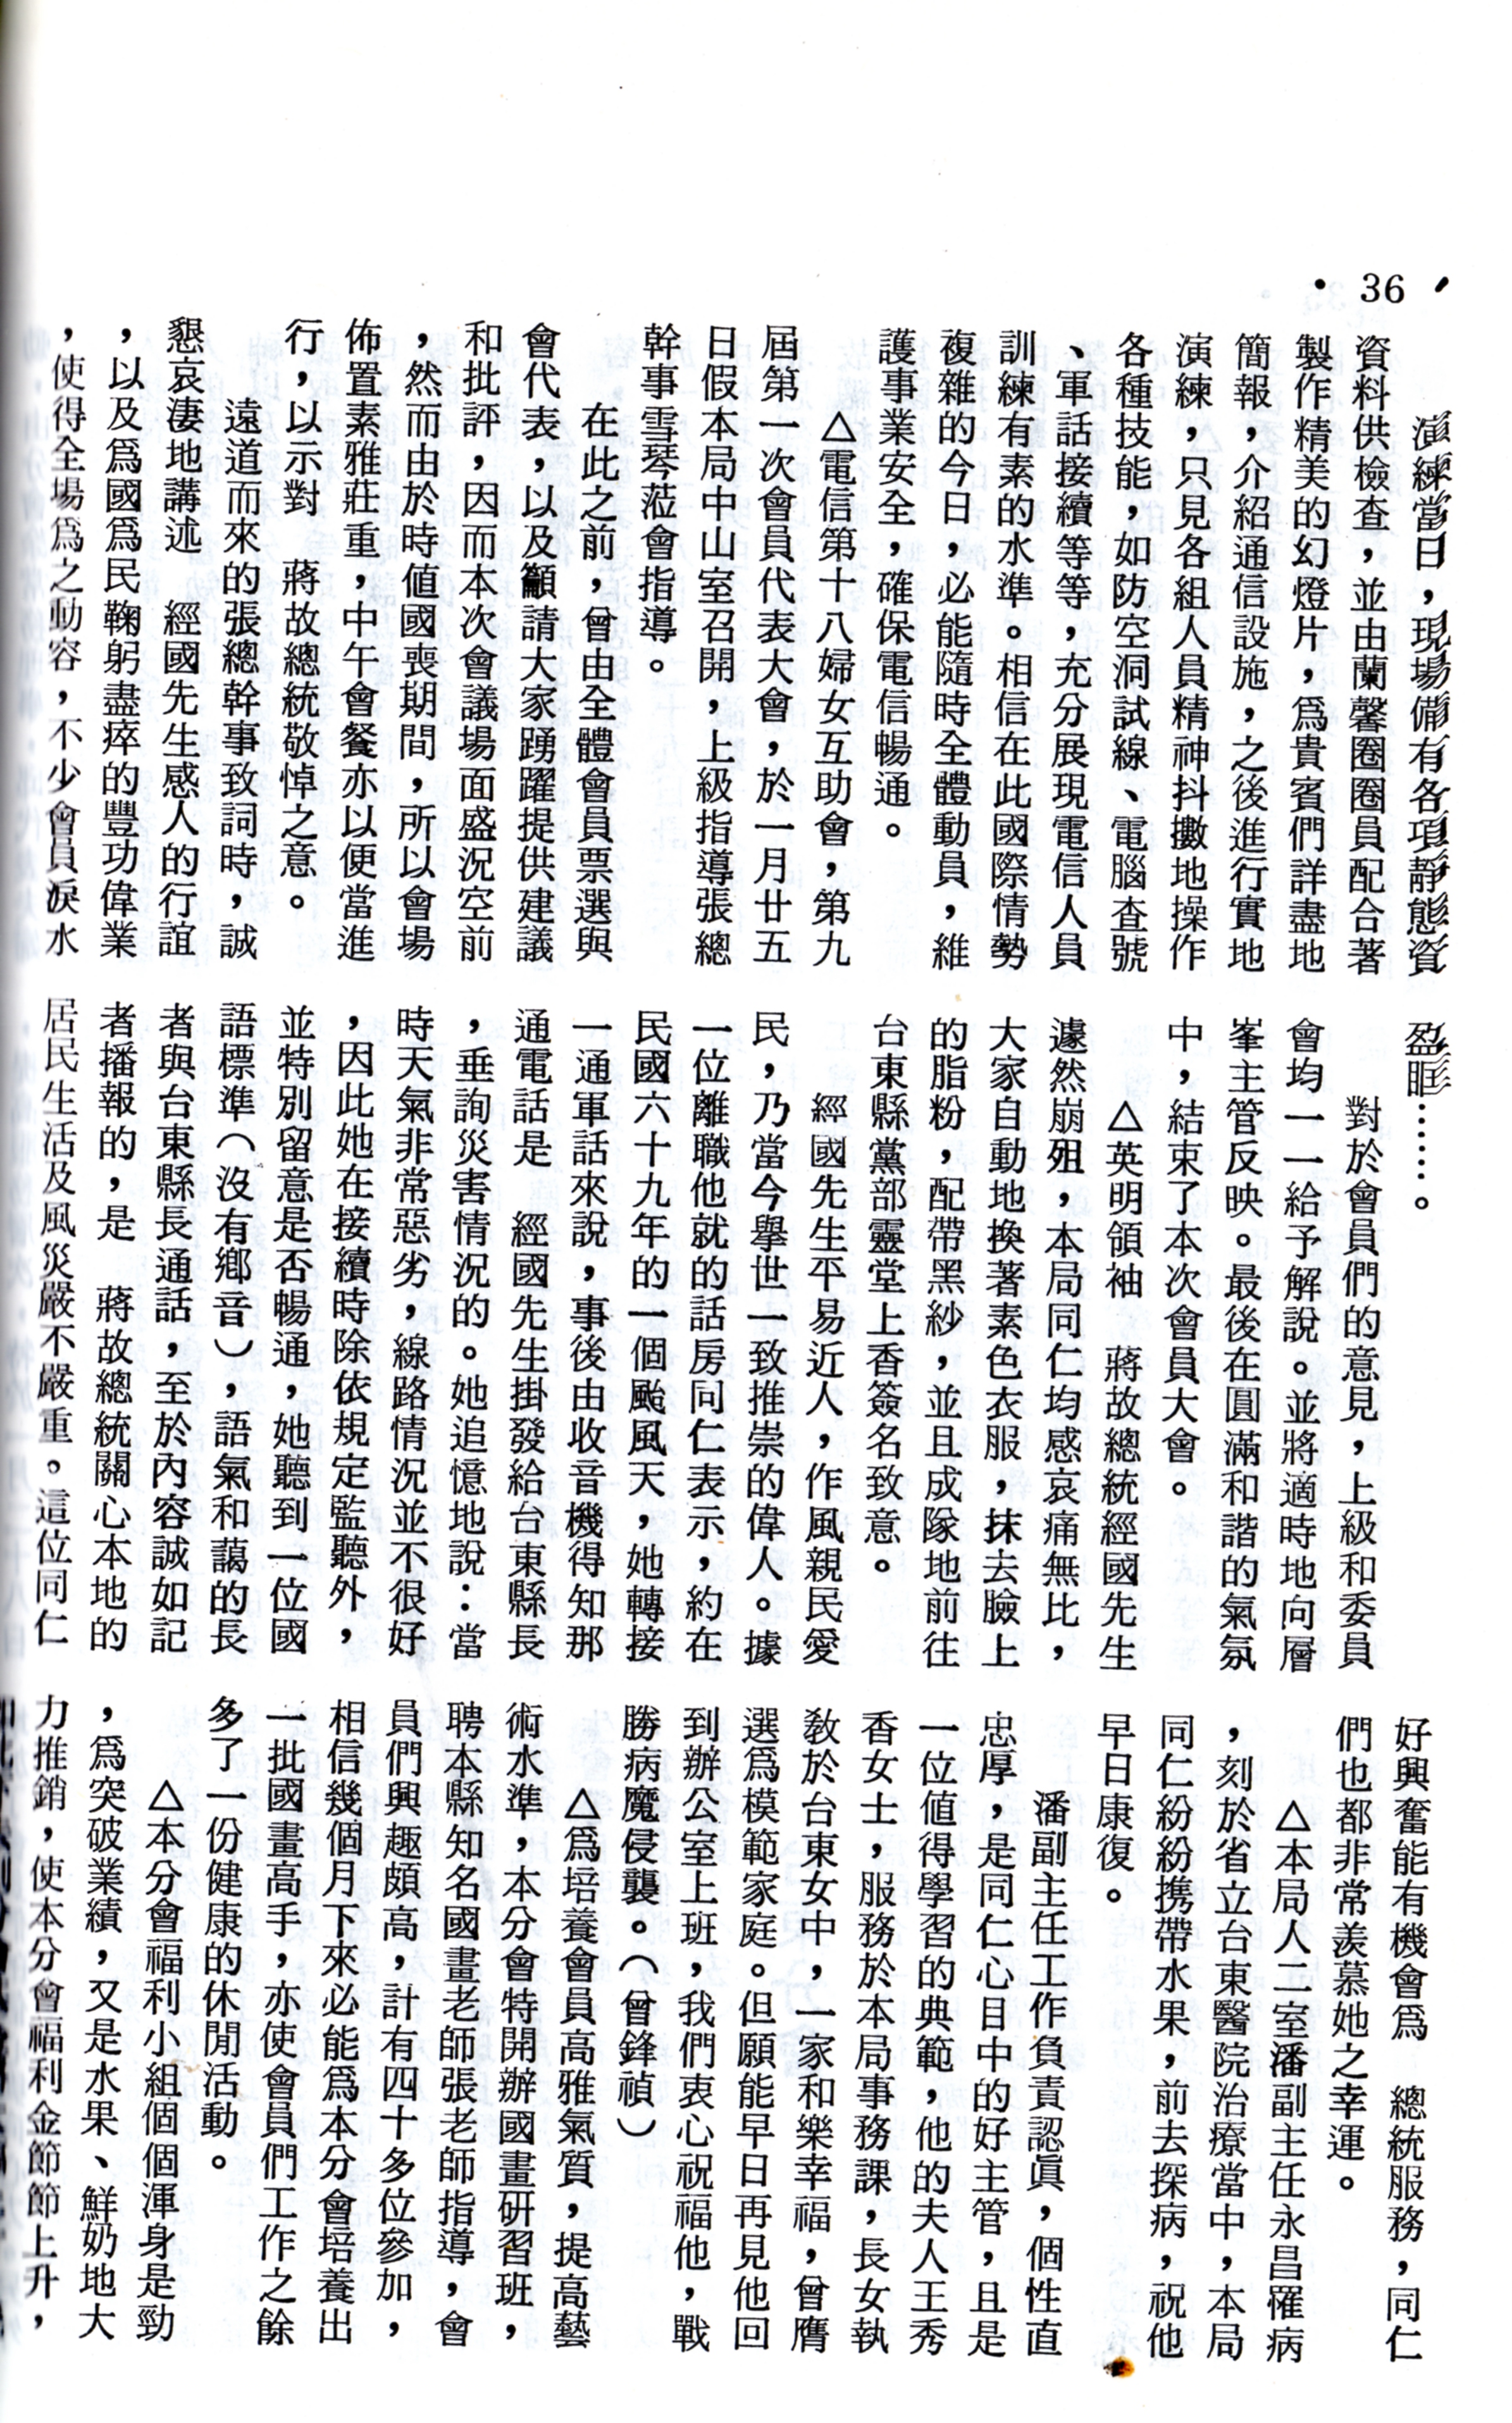 • 36 •
演練當日，現場備有各項靜態資
資料供檢查，並由蘭馨圈圈員配合著
製作精美的幻燈片，爲貴賓們詳盡地
簡報，介紹通信設施，之後進行實地
演練，只見各組人員精神抖擻地操作
各種技能，如防空洞試線、電腦查號
、軍話接續等等，充分展現電信人員
訓練有素的水準。相信在此國際情勢
複雜的今日，必能隨時全體動員，維
護事業安全，確保電信暢通。
△電信第十八婦女互助會，第九
屆第一次會員代表大會，於一月廿五
日假本局中山室召開，上級指導張總
幹事雪琴蒞會指導。
在此之前，曾由全體會員票選與
會代表，以及籲請大家踴躍提供建議
和批評，因而本次會議場面盛況空前
，然而由於時値國喪期間，所以會場
佈置素雅莊重，中午會餐亦以便當進
行，以示對　蔣故總統敬悼之意。
遠道而來的張總幹事致詞時，誠
懇哀淒地講述　經國先生感人的行誼
，以及爲國爲民鞠躬盡瘁的豐功偉業
，使得全場爲之動容，不少會員淚水
盈眶……。
對於會員們的意見，上級和委員
會均一一給予解說。並將適時地向層
峯主管反映。最後在圓滿和諧的氣氛
中，結束了本次會員大會。
△英明領袖　蔣故總統經國先生
遽然崩殂，本局同仁均感哀痛無比，
大家自動地換著素色衣服，抹去臉上
的脂粉，配帶黑紗，並且成隊地前往
台東縣黨部靈堂上香簽名致意。
經國先生平易近人，作風親民愛
民，乃當今舉世一致推崇的偉人。據
一位離職他就的話房同仁表示，約在
民國六十九年的一個颱風天，她轉接
一通軍話來說，事後由收音機得知那
通電話是　經國先生掛發給台東縣長
，垂詢災害情況的。她追憶地說：當
時天氣非常惡劣，線路情況並不很好
，因此她在接續時除依規定監聽外，
並特別留意是否暢通，她聽到一位國
語標準（沒有鄉音），語氣和藹的長
者與台東縣長通話，至於內容誠如記
者播報的，是　蔣故總統關心本地的
居民生活及風災嚴不嚴重。這位同仁
好興奮能有機會爲　總統服務，同仁
們也都非常羨慕她之幸運。
△本局人二室潘副主任永昌罹病
，刻於省立台東醫院治療當中，本局
同仁紛紛携帶水果，前去探病，祝他
早日康復。
潘副主任工作負責認眞，個性直
忠厚，是同仁心目中的好主管，且是
一位値得學習的典範，他的夫人王秀
香女士，服務於本局事務課，長女執
敎於台東女中，一家和樂幸福，曾膺
選爲模範家庭。但願能早日再見他回
到辦公室上班，我們衷心祝福他，戰
勝病魔侵襲。（曾鋒禎）
△爲培養會員高雅氣質，提高藝
術水準，本分會特開辦國畫研習班，
聘本縣知名國畫老師張老師指導，會
員們興趣頗高，計有四十多位參加，
相信幾個月下來必能爲本分會培養出
一批國畫高手，亦使會員們工作之餘
多了一份健康的休閒活動。
△本分會福利小組個個渾身是勁
，爲突破業績，又是水果、鮮奶地大
力推銷，使本分會福利金節節上升，